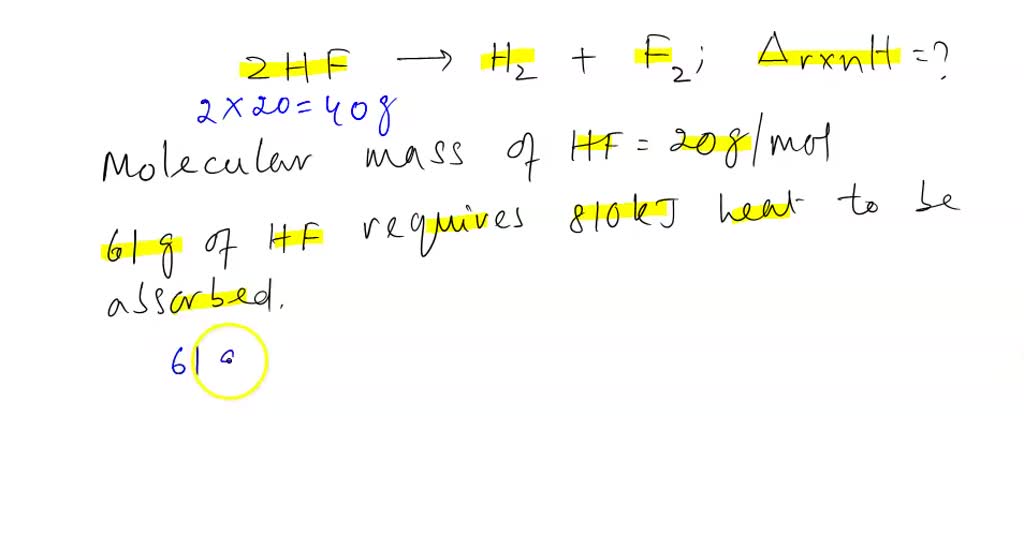 2HF → H₂ + F₂; ΔrxnH = ?
2 × 20 = 40g
Molecular mass of HF = 20g/mol
61g of HF requires 810kJ heat to be
absorbed.
61